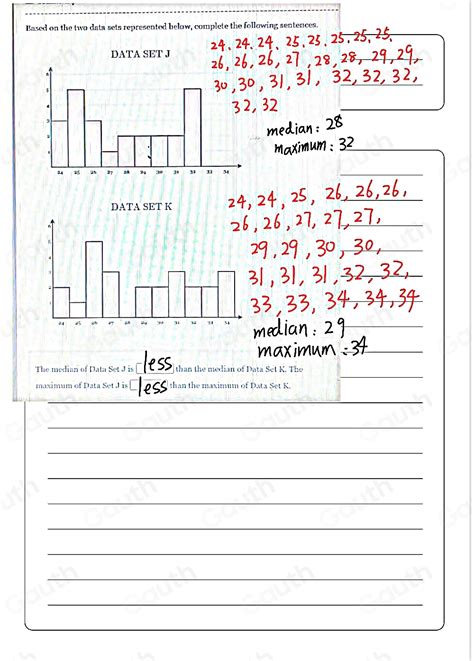 Based on the two data sets represented below, complete the following sentences.
DATA SET J
24, 24, 24, 25, 25, 25, 25, 25,
26, 26, 26, 27, 28, 28, 29, 29,
30, 30, 31, 31, 32, 32, 32,
32, 32
median: 28
maximum: 32
24 25 26 27 28 29 30 31 32 33 34
DATA SET K
24, 24, 25, 26, 26, 26,
26, 26, 27, 27, 27,
29, 29, 30, 30,
31, 31, 31, 32, 32,
33, 33, 34, 34, 34
median: 29
maximum: 34
24 25 26 27 28 29 30 31 32 33 34
The median of Data Set J is less than the median of Data Set K. The
maximum of Data Set J is less than the maximum of Data Set K.